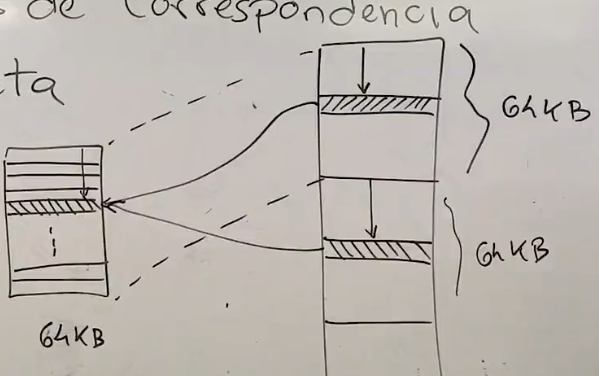 de Correspondencia
ta
64KB
64KB
64KB